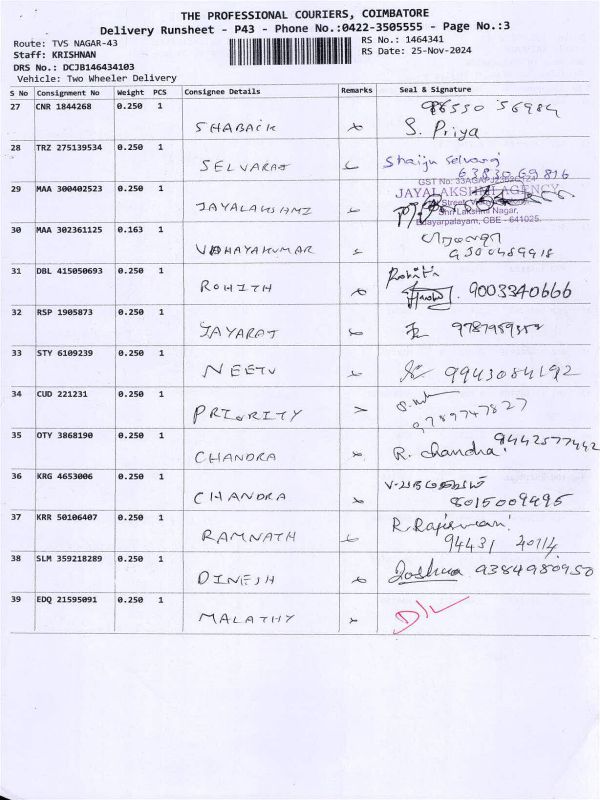 THE PROFESSIONAL COURIERS, COIMBATORE
Delivery Runsheet - P43 - Phone No.:0422-3505555 - Page No.:3
Route: TVS NAGAR-43
RS No.: 1464341
Staff: KRISHNAN
RS Date: 25-Nov-2024
DRS No.: DCJB146434103
Vehicle: Two Wheeler Delivery
S No Consignment No Weight PCS Consignee Details Remarks Seal & Signature
27 CNR 1844268 0.250 1 SHABACK S. Priya
28 TRZ 275139534 0.250 1 SELVARAJ Shaiju Selvaraj
6383069816
29 MAA 300402523 0.250 1 JAYALAKSHMI
JAYALAKSHMI AGENCY
Shri Lakshmi Nagar,
Edayarpalayam, CBE - 641025.
30 MAA 302361125 0.163 1 UDHAYAKUMAR
31 DBL 415050693 0.250 1 ROHITH Rohith
9003340666
32 RSP 1905873 0.250 1 JAYARAJ
33 STY 6109239 0.250 1 NEETU 9943084192
34 CUD 221231 0.250 1 PRIORITY
9789747827
35 OTY 3868190 0.250 1 CHANDRA R. Chandra 9442577442
36 KRG 4653006 0.250 1 CHANDRA
8015009495
37 KRR 50106407 0.250 1 RAMNATH
94431 20114
38 SLM 359218289 0.250 1 DINESH Joshua 9384980950
39 EDQ 21595091 0.250 1 MALATHY D/L